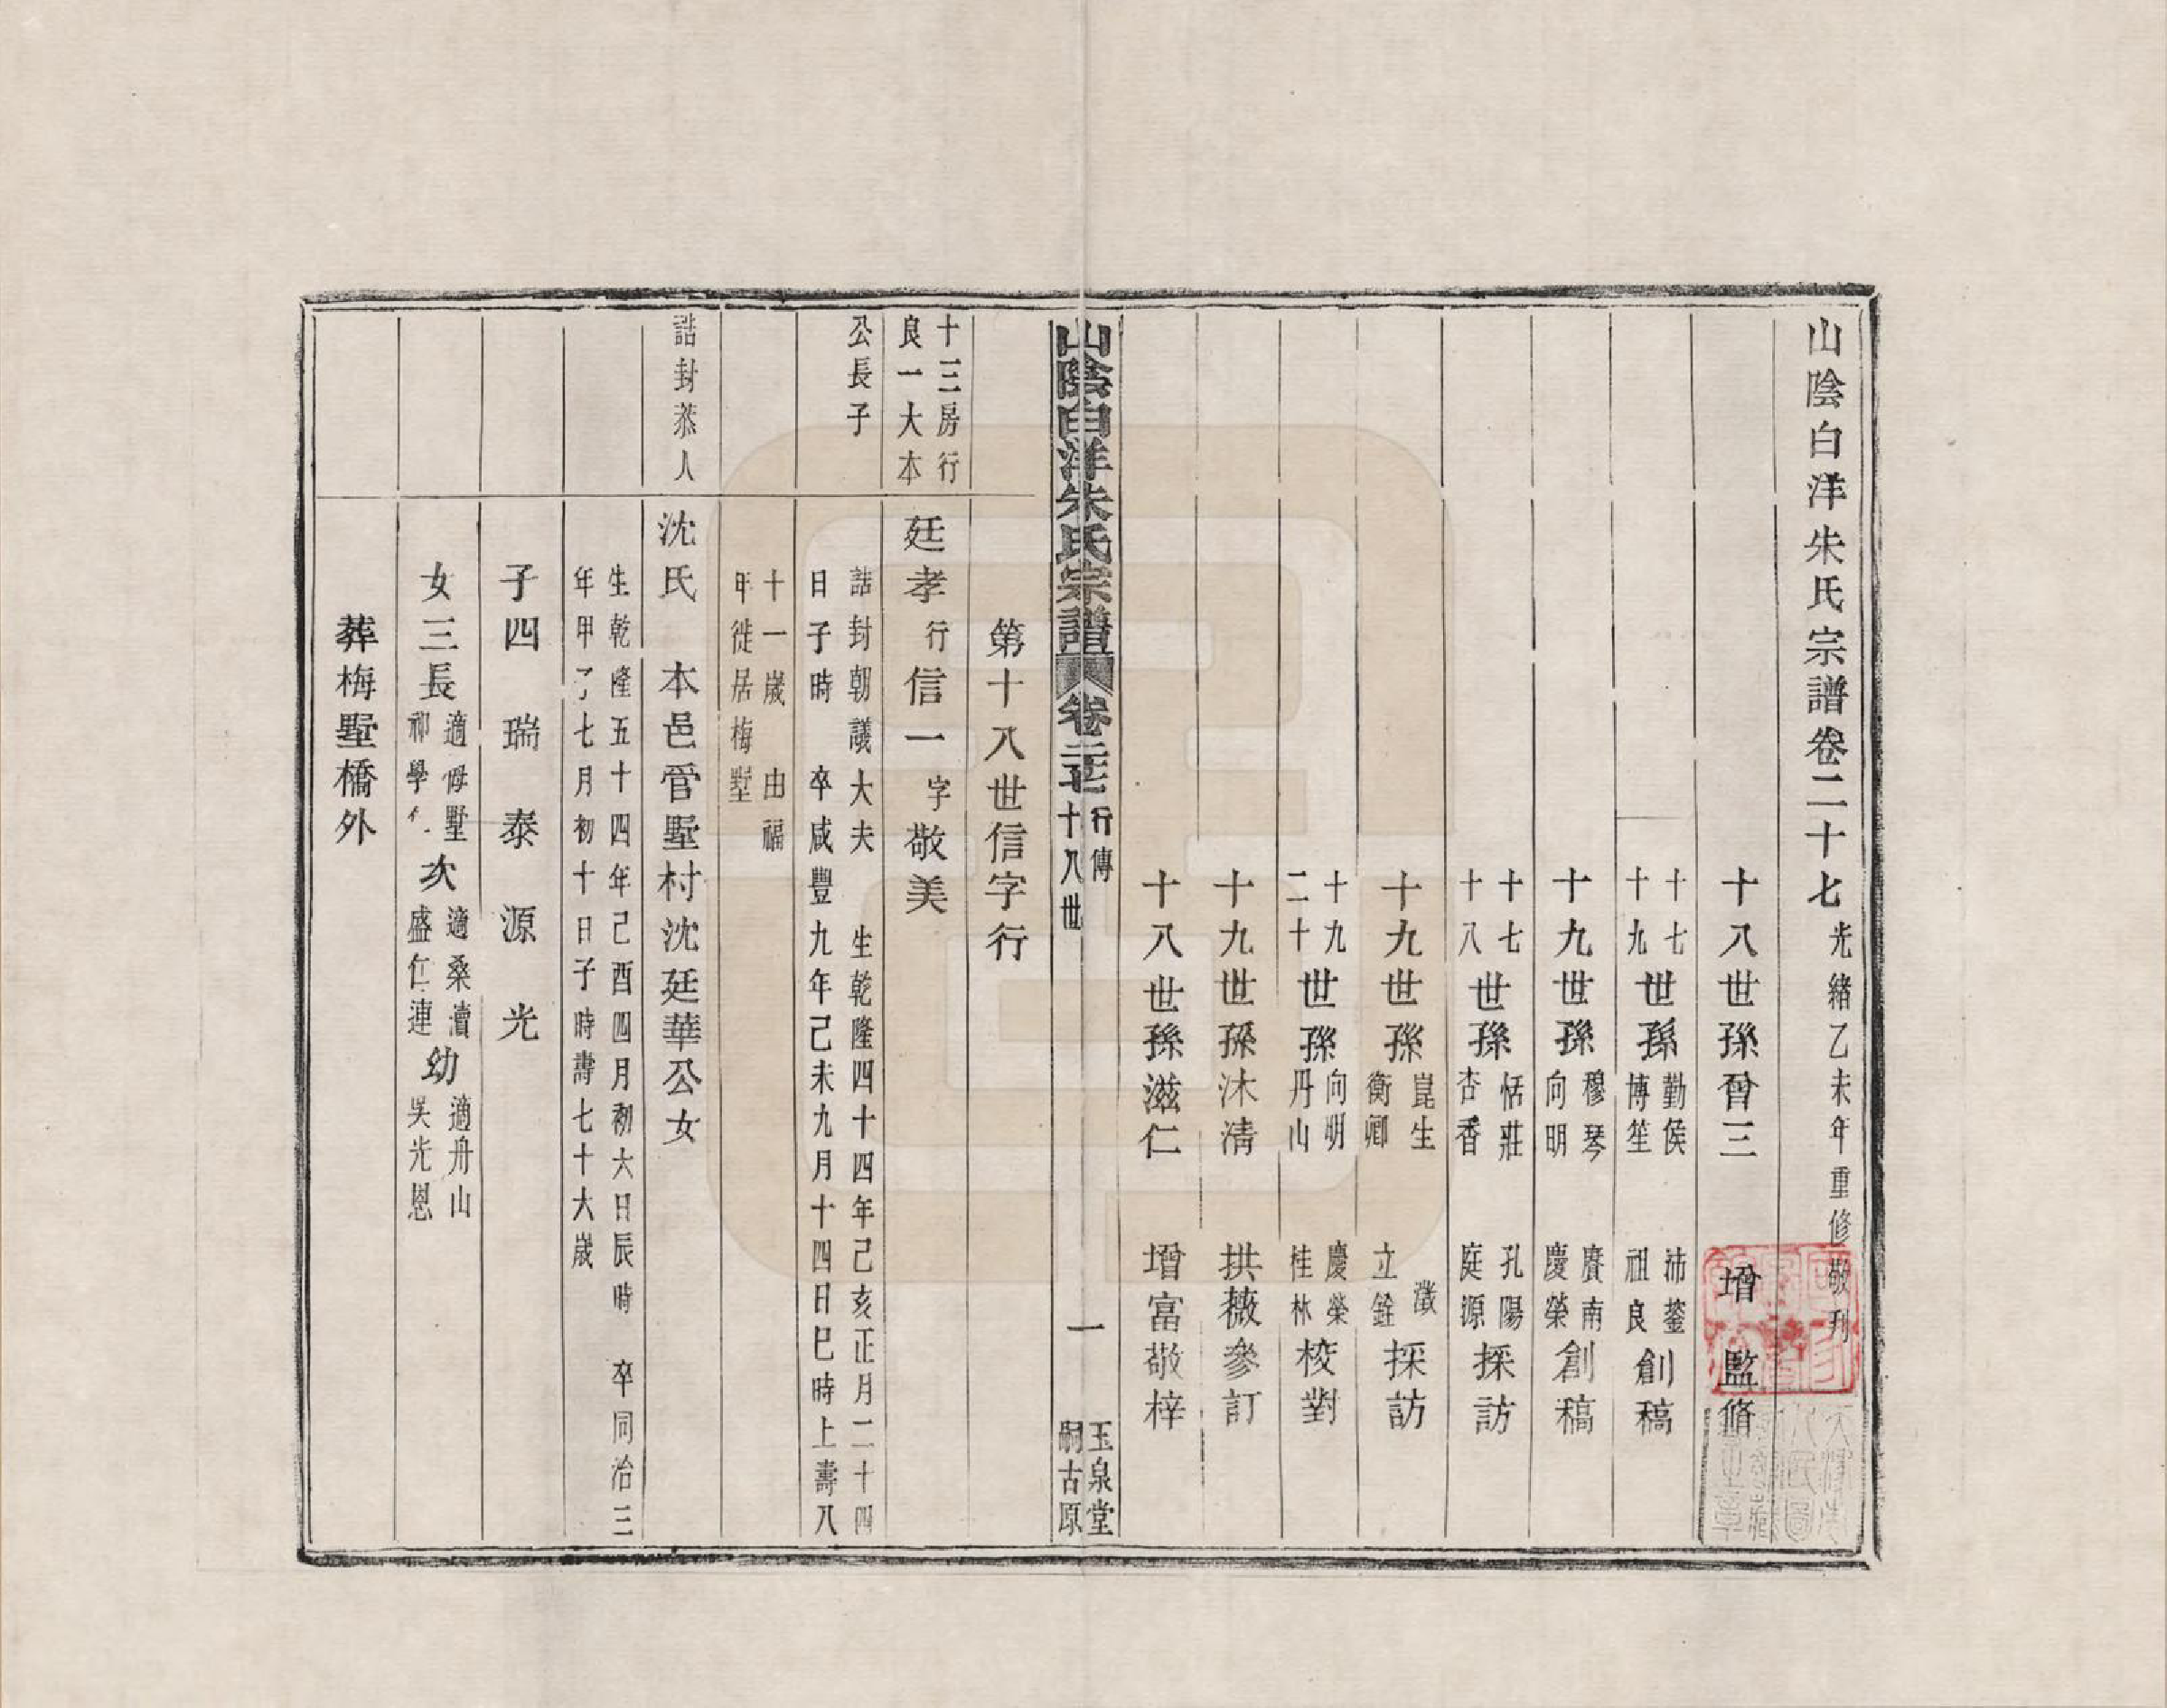 山陰白洋朱氏宗譜卷二十七 光緒乙未年重修敬刊
十八世孫曾三 增 監脩
十七十九世孫勤侯博笙 沛鋆祖良創稿
十九世孫穆琴向明 賡南慶榮創稿
十七十八世孫恬莊杏香 孔陽庭源採訪
十九世孫崑生衡卿 瀓立銓採訪
十九二十世孫向明丹山 慶榮桂林校對
十九世孫沐清 拱薇參訂
十八世孫滋仁 增富敬梓
山陰白洋朱氏宗譜 卷二十七 行傳 十八世 一 玉泉堂 嗣古原
第十八世信字行
十三房行良一大本
廷孝 行信一 字敬美
公長子
誥封朝議大夫 生乾隆四十四年己亥正月二十四
日子時 卒咸豐九年己未九月十四日巳時上壽八
十一歲 由福
年徙居梅墅
誥封恭人
沈氏 本邑管墅村沈廷華公女
生乾隆五十四年己酉四月初六日辰時 卒同治三
年甲子七月初十日子時壽七十六歲
子四 瑞 泰 源 光
女三長適梅墅祁學 次適桑瀆盛仁連 幼適舟山吳光恩
葬梅墅橋外